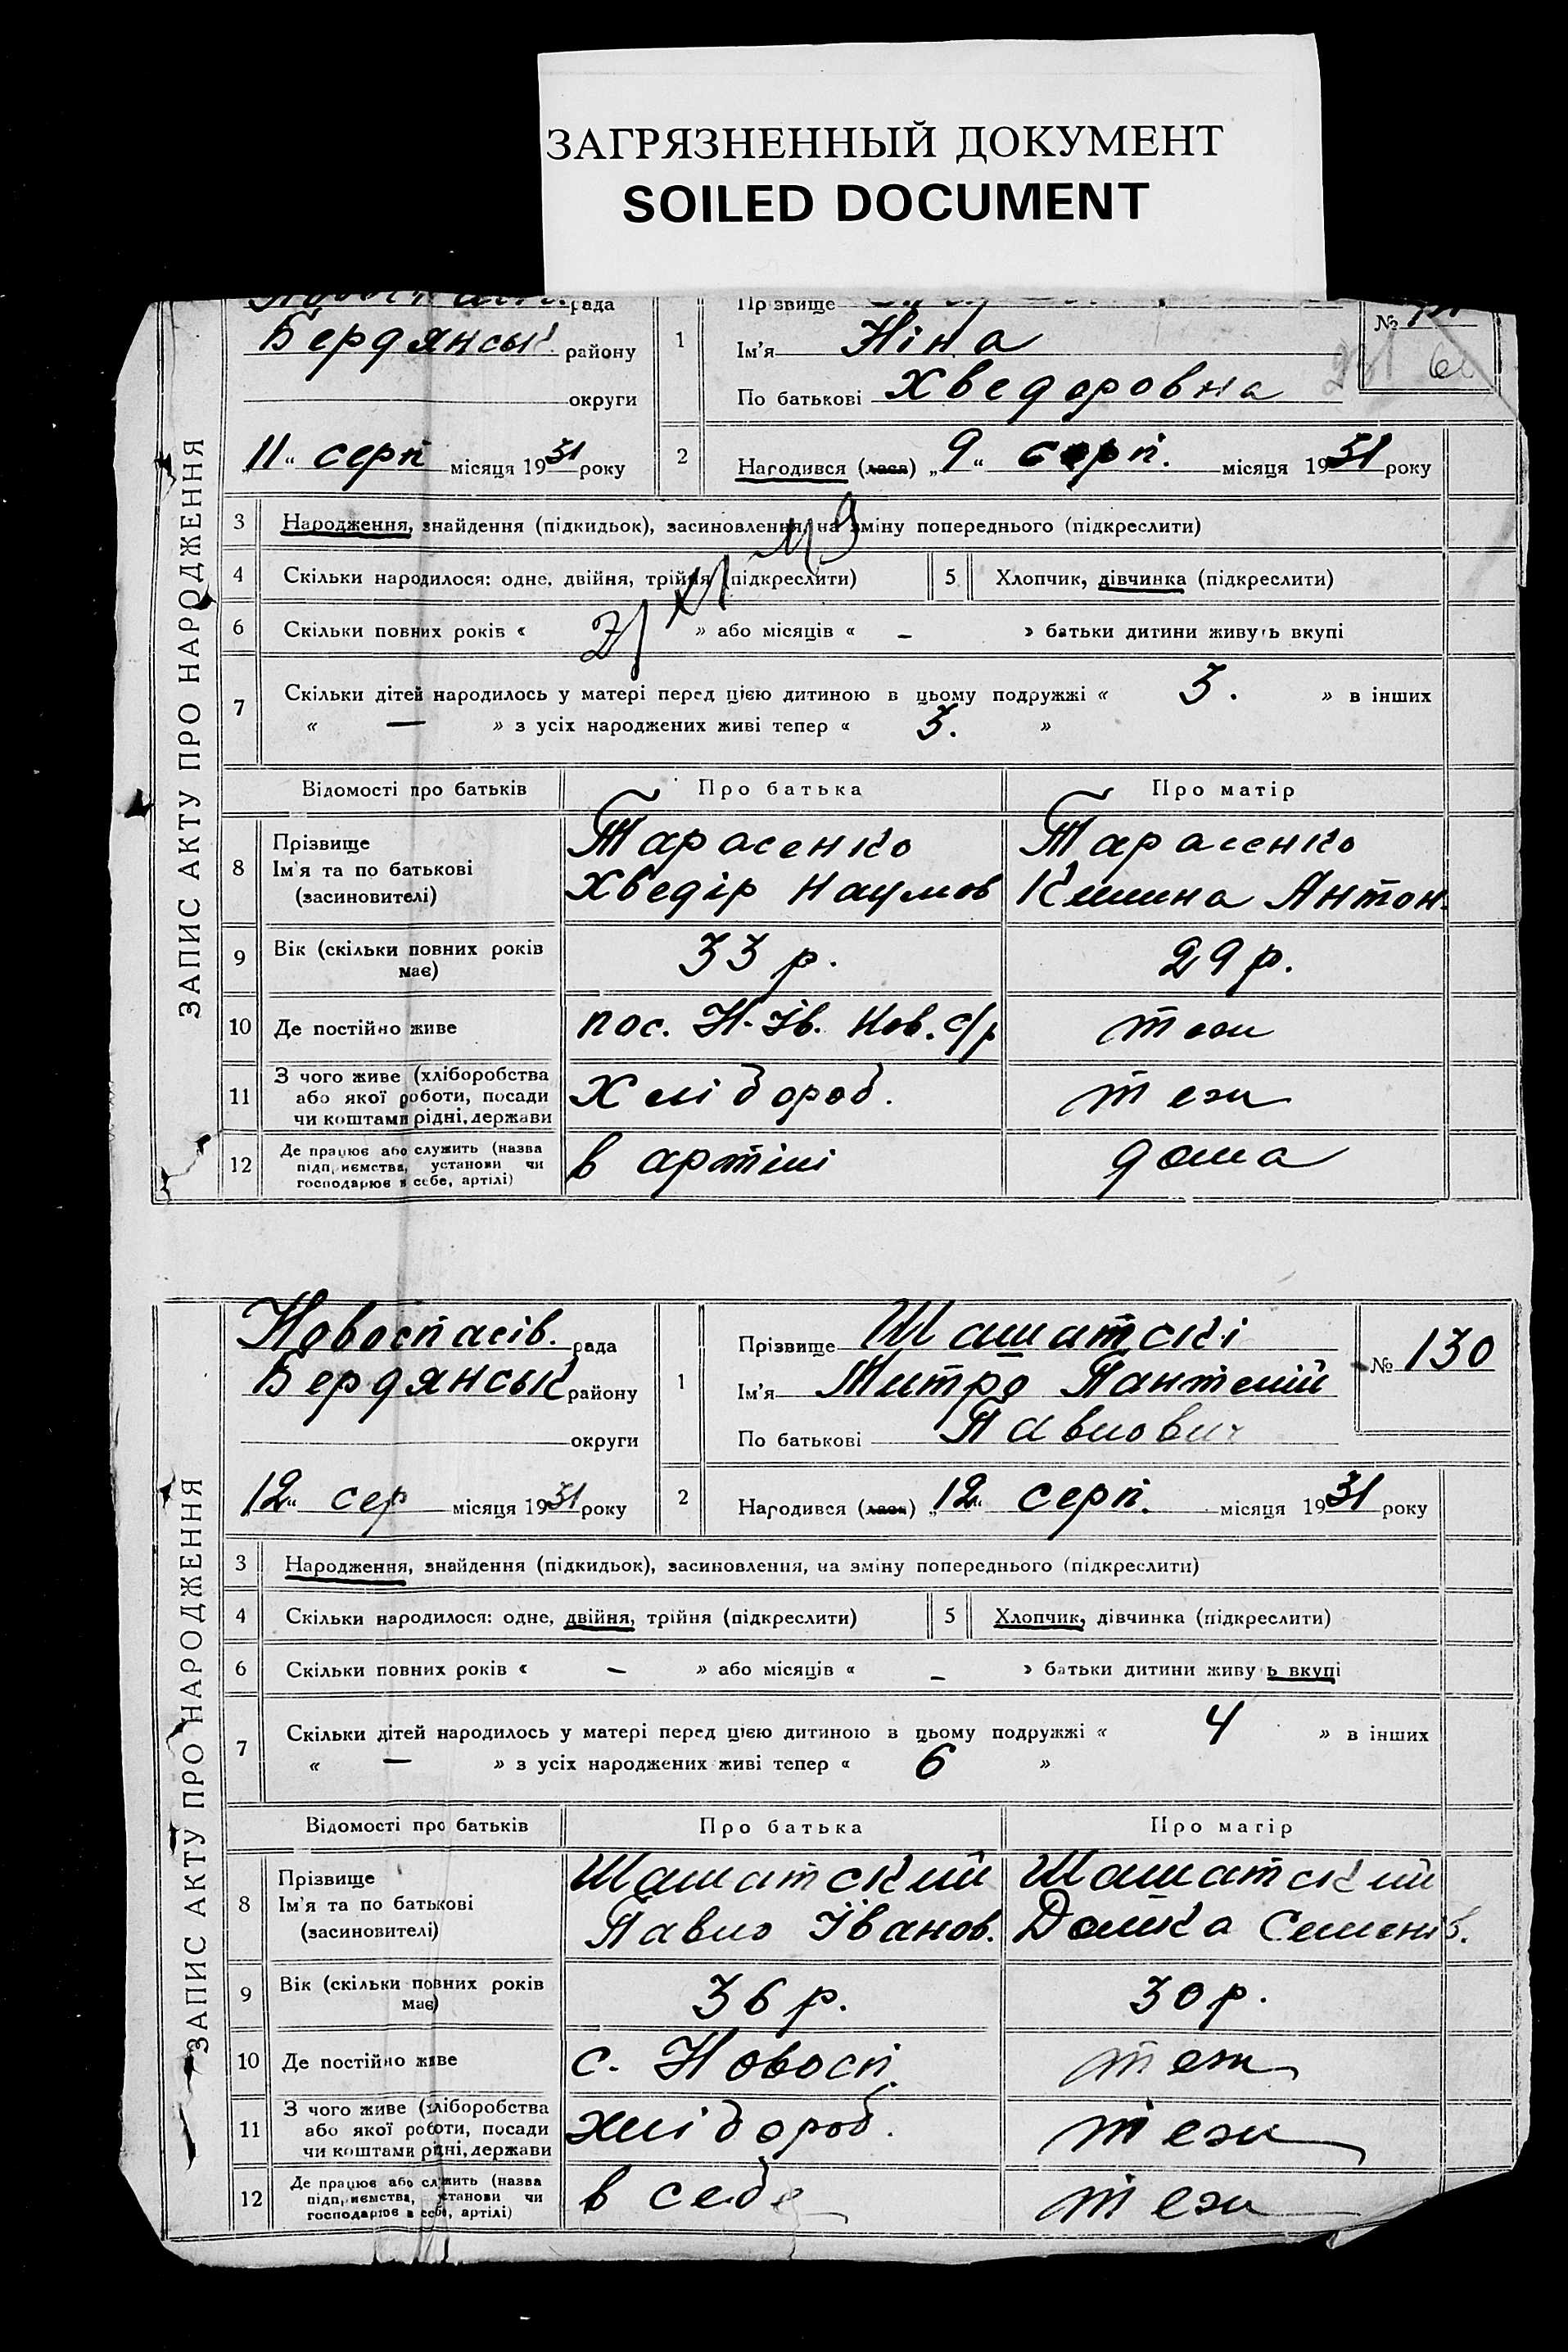 ЗАГРЯЗНЕННЫЙ ДОКУМЕНТ
SOILED DOCUMENT
ЗАПИС АКТУ ПРО НАРОДЖЕННЯ
рада
Бердянськ району
округи
11 серп місяця 1931 року
1
Прізвище
Ім'я Ніна
По батькові Хведоровна
№
2
Народився (лася) „9“ серп. місяця 1931 року
3 Народження, знайдення (підкидьок), засиновлення, на зміну попереднього (підкреслити)
4 Скільки народилося: одне, двійня, трійня (підкреслити)
5 Хлопчик, дівчинка (підкреслити)
6 Скільки повних років « » або місяців « – » батьки дитини живуть вкупі
7 Скільки дітей народилось у матері перед цією дитиною в цьому подружжі « 3. » в інших
« — » з усіх народжених живі тепер « 3. »
Відомості про батьків Про батька Про матір
8 Прізвище
Ім'я та по батькові
(засиновителі)
Тарасенко
Хведір Наумов
Тарасенко
Антон.
9 Вік (скільки повних років має) 33 р. 29 р.
10 Де постійно живе пос. Н-Ів. Нов. с/р теж
11 З чого живе (хліборобства
або якої роботи, посади
чи коштами рідні, держави
Хлібороб. теж
12 Де працює або служить (назва
підприємства, установи чи
господарює в себе, артілі)
в артілі дома
ЗАПИС АКТУ ПРО НАРОДЖЕННЯ
Новоспасів. рада
Бердянськ району
округи
12 сер місяця 1931 року
1
Прізвище Шашатскі
Ім'я Митро Пантелій
По батькові Павлович
№ 130
2
Народився (лася) „12“ серп. місяця 1931 року
3 Народження, знайдення (підкидьок), засиновлення, на зміну попереднього (підкреслити)
4 Скільки народилося: одне, двійня, трійня (підкреслити)
5 Хлопчик, дівчинка (підкреслити)
6 Скільки повних років « – » або місяців « – » батьки дитини живуть вкупі
7 Скільки дітей народилось у матері перед цією дитиною в цьому подружжі « 4 » в інших
« — » з усіх народжених живі тепер « 6 »
Відомості про батьків Про батька Про матір
8 Прізвище
Ім'я та по батькові
(засиновителі)
Шашатский
Павло Іванов.
Шашатский
Домка Семенів.
9 Вік (скільки повних років має) 36 р. 30 р.
10 Де постійно живе с. Новосп. теж
11 З чого живе (хліборобства
або якої роботи, посади
чи коштами рідні, держави
хлібороб. теж
12 Де працює або служить (назва
підприємства, установи чи
господарює в себе, артілі)
в себе теж